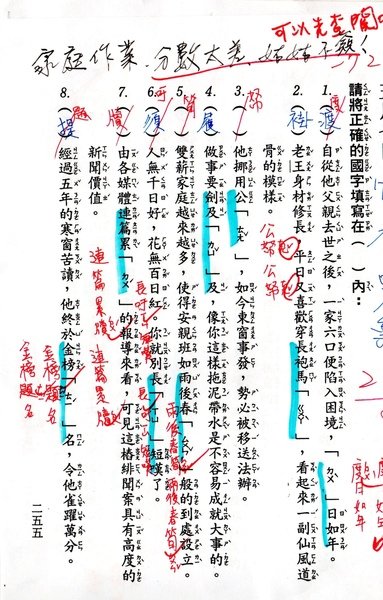 可以先查閱
家庭作業.分數太差,
請將正確的國字填寫在()內:
1.(渡)自從他父親去世之後,一家六口便陷入困境,「ㄉㄨˋ」日如年。
度
2.(褂)老王身材修長,平日又喜歡穿長袍馬「ㄍㄨㄚˋ」,看起來一副仙風道
骨的模樣。
3.()他挪用公「ㄊㄤˇ」,如今東窗事發,勢必被移送法辦。
帑
公帑
公帑
4.(屨)做事要劍及「ㄐㄩˋ」及,像你這樣拖泥帶水是不容易成就大事的。
5.()雙薪家庭越來越多,使得安親班如雨後春「ㄙㄨㄣˇ」般的到處設立。
筍
雨後春筍
雨後春筍
6.()人無千日好,花無百日紅。你就別長「ㄒㄩ」短嘆了。
吁
7.()由各媒體連篇累「ㄉㄨˊ」的報導來看,可見這樁緋聞案具有高度的
新聞價值。
牘
連篇累牘
連篇累牘
8.(提)經過五年的寒窗苦讀,他終於金榜「ㄊㄧˊ」名,令他雀躍萬分。
題
金榜題名
金榜題名
度日如年
二五五